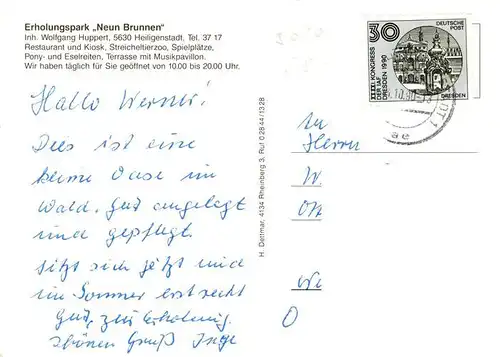 Erholungspark „Neun Brunnen“
Inh. Wolfgang Huppert, 5630 Heiligenstadt, Tel. 37 17
Restaurant und Kiosk, Streicheltierzoo, Spielplätze,
Pony- und Eselreiten, Terrasse mit Musikpavillon.
Wir haben täglich für Sie geöffnet von 10.00 bis 20.00 Uhr.
Hallo Werner!
Dies ist eine
kleine Oase im
Wald. Gut angelegt
und gepflegt.
Sitzt sich jetzt und
im Sommer erst recht
gut, zur Erholung.
Schönen Gruß Inge
H. Dettmar, 4134 Rheinberg 3, Ruf 0 28 44 / 13 28
30
DEUTSCHE
POST
XXIII. KONGRESS
DER IAF
DRESDEN 1990
DRESDEN
An
Herrn
W.
O